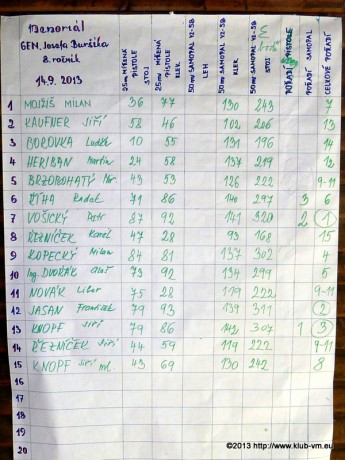 Memoriál
GEN. Josefa Buršíka
8. ročník
14.9. 2013
25m MÍŘENÁ PISTOLE STOJ
25m MÍŘENÁ PISTOLE KLEK
50m/ SAMOPAL VZ-58 LEH
50m/ SAMOPAL VZ-58 KLEK
50m/ SAMOPAL VZ-58 STOJ
POŘADÍ PISTOLE
POŘADÍ SAMOPAL
CELKOVÉ POŘADÍ
1 MOJŽIŠ MILAN 36 77 130 243 7
2 KAUFNER Jiří 58 46 102 206 13
3 BOROVKA Luděk 10 55 131 196 14
4 HERIBAN Martin 24 58 137 219 12
5 BRZOBOHATÝ 43 53 126 222 9-11
6 ŘÍHA Radek 71 86 140 297 3 6
7 VOŠICKÝ Petr 87 92 141 320 2 1
8 ŘEZNÍČEK Karel 47 28 93 168 15
9 KOPECKÝ Milan 84 81 137 302 4
10 Ing. DVOŘÁK 73 92 134 299 5
11 NOVÁK Libor 75 28 119 222 9-11
12 JASAN František 79 93 139 311 2
13 KNOPF Jiří 79 86 142 307 1 3
14 ŘEZNÍČEK Jiří 44 59 119 222 9-11
15 KNOPF Jiří ml. 43 69 130 242 8
16
17
18
19
20
©2013 http://www.klub-vm.eu